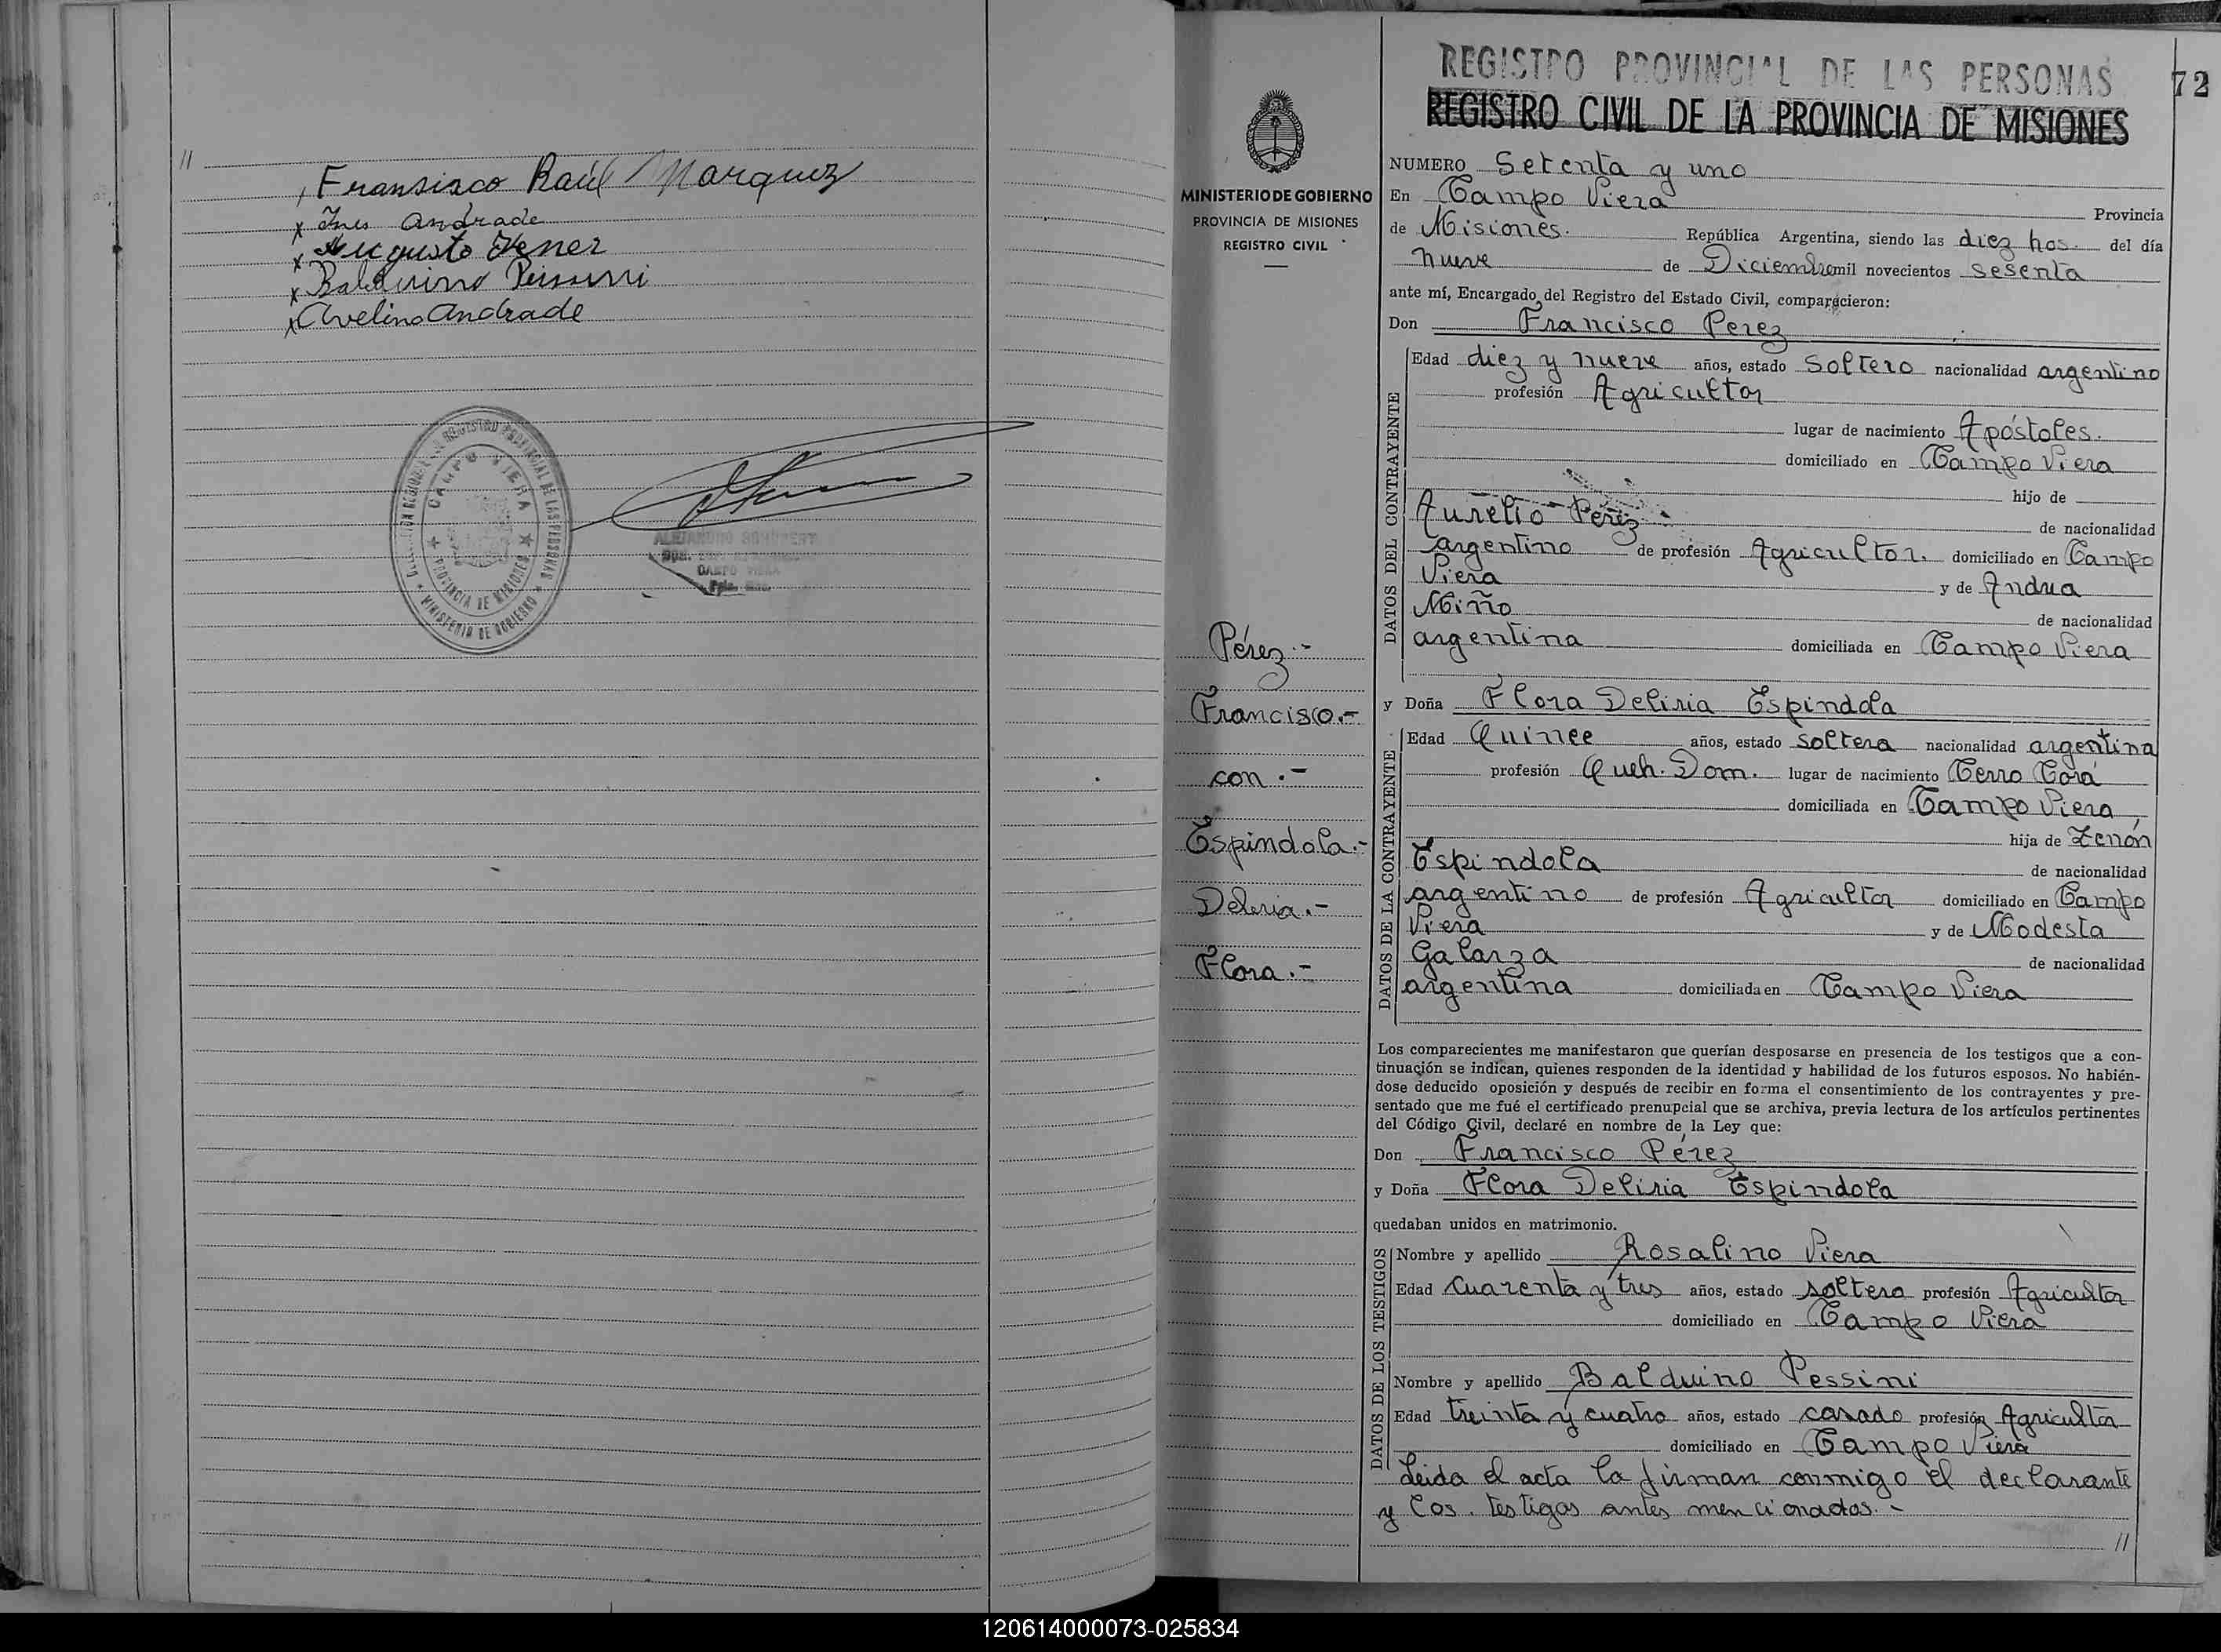 //
Fransisco Raúl Marquez
x Ines Andrade
x Augusto Kener
x Balduino Pessini
x Avelino Andrade
CAMPO VIERA
PROVINCIA DE MISIONES
MINISTERIO DE GOBIERNO
ALEJANDRO
CAMPO VIERA
REGISTRO PROVINCIAL DE LAS PERSONAS
72
REGISTRO CIVIL DE LA PROVINCIA DE MISIONES
MINISTERIO DE GOBIERNO
PROVINCIA DE MISIONES
REGISTRO CIVIL
Pérez.-
Francisco.-
con.-
Espindola.-
Deliria.-
Flora.-
NUMERO Setenta y uno
En Campo Viera Provincia
de Misiones. República Argentina, siendo las diez hos. del día
nueve de Diciembre mil novecientos sesenta
ante mí, Encargado del Registro del Estado Civil, comparecieron:
Don Francisco Perez
DATOS DEL CONTRAYENTE
Edad diez y nueve años, estado soltero nacionalidad argentino
profesión Agricultor
lugar de nacimiento Apóstoles.
domiciliado en Campo Viera
hijo de
Aurelio Pérez de nacionalidad
argentino de profesión Agricultor. domiciliado en Campo
Viera y de Andrea
Miño de nacionalidad
argentina domiciliada en Campo Viera
y Doña Flora Deliria Espindola
DATOS DE LA CONTRAYENTE
Edad Quince años, estado soltera nacionalidad argentina
profesión Queh. Dom. lugar de nacimiento Cerro Corá
domiciliada en Campo Viera
hija de Zenón
Espindola de nacionalidad
argentino de profesión Agricultor domiciliado en Campo
Viera y de Modesta
Galarza de nacionalidad
argentina domiciliada en Campo Viera
Los comparecientes me manifestaron que querían desposarse en presencia de los testigos que a con-
tinuación se indican, quienes responden de la identidad y habilidad de los futuros esposos. No habién-
dose deducido oposición y después de recibir en forma el consentimiento de los contrayentes y pre-
sentado que me fué el certificado prenupcial que se archiva, previa lectura de los artículos pertinentes
del Código Civil, declaré en nombre de la Ley que:
Don Francisco Pérez
y Doña Flora Deliria Espindola
quedaban unidos en matrimonio.
DATOS DE LOS TESTIGOS
Nombre y apellido Rosalino Viera
Edad cuarenta y tres años, estado soltero profesión Agricultor
domiciliado en Campo Viera
Nombre y apellido Balduino Pessini
Edad treinta y cuatro años, estado casado profesión Agricultor
domiciliado en Campo Viera
Leida el acta la firman conmigo el declarante
y los testigos antes mencionados.-
//
120614000073-025834